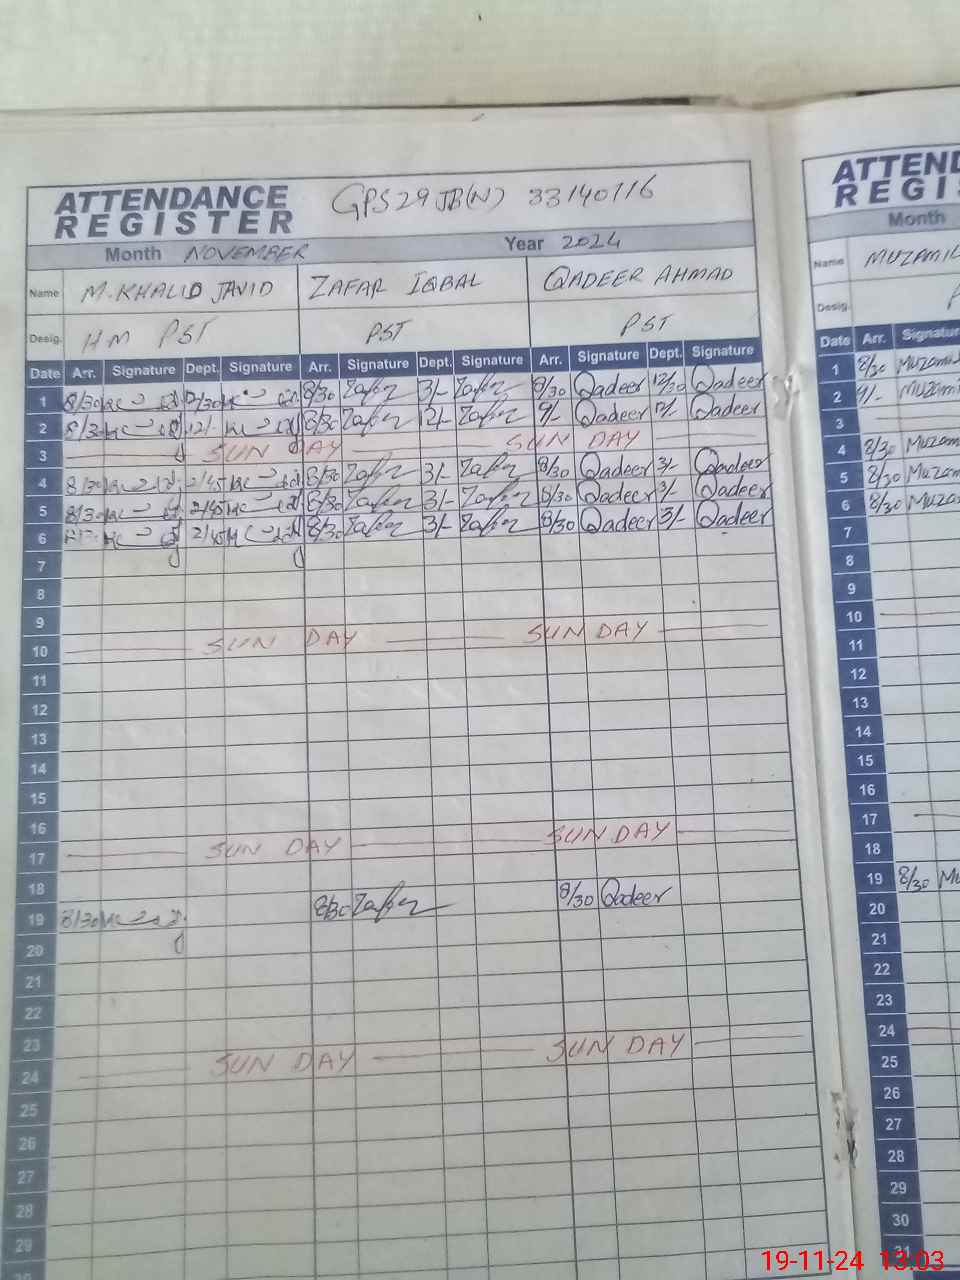 ATTENDANCE REGISTER GPS 29 JB(N) 33140116
Month NOVEMBER Year 2024
Name M. KHALID JAVID ZAFAR IQBAL QADEER AHMAD
Desig. HM PST PST PST
Date Arr. Signature Dept. Signature Arr. Signature Dept. Signature Arr. Signature Dept. Signature
1 8/30 8/30 Zafar 3/- Zafar 8/30 Qadeer 12/30 Qadeer
2 8/30 12/- 8/30 Zafar 12/- Zafar 9/- Qadeer Qadeer
3 SUN DAY SUN DAY
4 8/30 2/45 8/30 Zafar 3/- Zafar 8/30 Qadeer 3/- Qadeer
5 8/30 2/45 8/30 Zafar 3/- Zafar 8/30 Qadeer 3/- Qadeer
6 2/45 8/30 Zafar 3/- Zafar 8/30 Qadeer 3/- Qadeer
7
8
9
10 SUN DAY SUN DAY
11
12
13
14
15
16
17 SUN DAY SUN DAY
18
19 8/30 8/30 Zafar 8/30 Qadeer
20
21
22
23
24 SUN DAY SUN DAY
25
26
27
28
29
30
ATTEND
REGIS
Month
Name MUZAMIL
Desig.
Date Arr. Signature
1 8/30 Muzamil
2 9/- Muzami
3
4 8/30 Muzam
5 8/30 Muzam
6 8/30 Muza
7
8
9
10
11
12
13
14
15
16
17
18
19 8/30 Mu
20
21
22
23
24
25
26
27
28
29
30
31
19-11-24 13:03